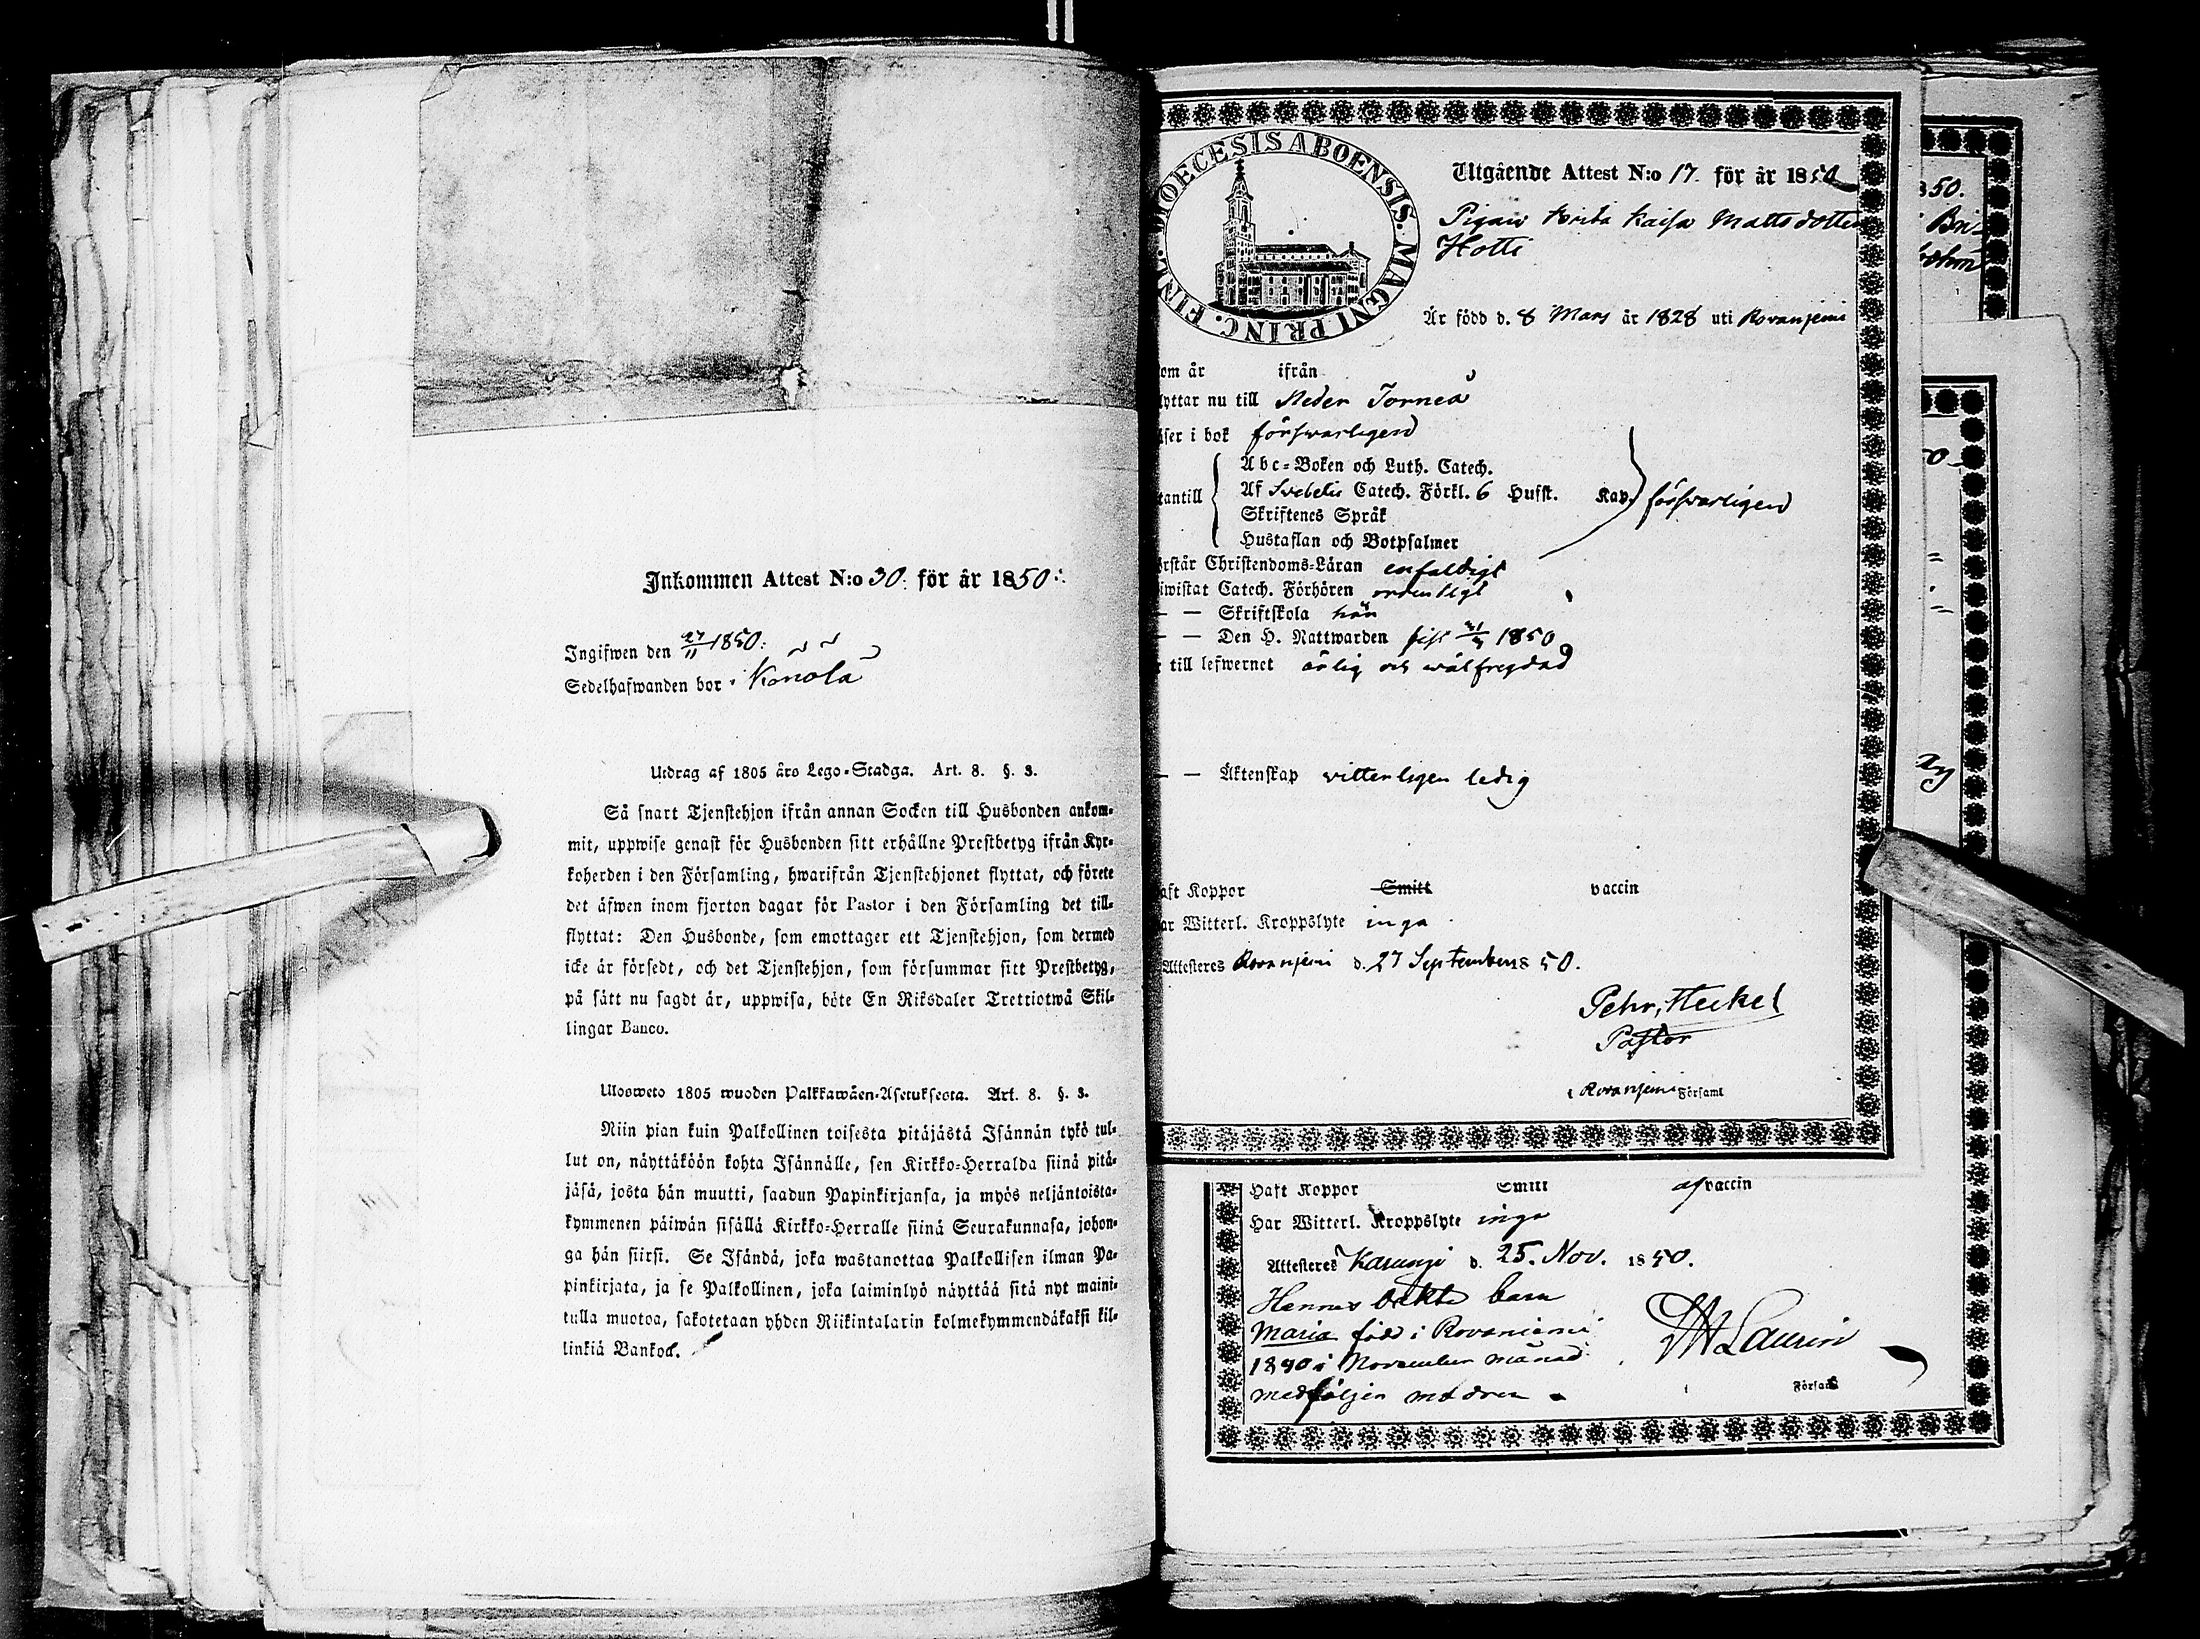 Inkommen Attest N:o 30. för år 1850.
Ingifwen den 27/11 1850.
Sedelhafwanden bor i Könölä
Utdrag af 1805 års Lego-Stadga. Art. 8. §. 3.
Så snart Tjenstehjon ifrån annan Socken till Husbonden ankom-
mit, uppwise genast för Husbonden sitt erhållne Prestbetyg ifrån Kyr-
koherden i den Församling, hwarifrån Tjenstehjonet flyttat, och förete
det äfwen inom fjorton dagar för Pastor i den Församling det till-
flyttat: Den Husbonde, som emottager ett Tjenstehjon, som dermed
icke är försedt, och det Tjenstehjon, som försummar sitt Prestbetyg,
på sätt nu sagdt är, uppwisa, böte En Riksdaler Trettiotwå Skil-
lingar Banco.
Ulosweto 1805 wuoden Palkkawäen-Asetuksesta. Art. 8. §. 3.
Niin pian kuin Palkollinen toisesta pitäjästä Isännän tykö tul-
lut on, näyttäköön kohta Isännälle, sen Kirkko-Herralda siinä pitä-
jäsä, josta hän muutti, saadun Papinkirjansa, ja myös neljäntoista-
kymmenen päiwän sisällä Kirkko-Herralle siinä Seurakunnasa, johon-
ga hän siirsi. Se Isändä, joka wastanottaa Palkollisen ilman Pa-
pinkirjata, ja se Palkollinen, joka laiminlyö näyttää sitä nyt maini-
tulla muotoa, sakotetaan yhden Riikintalarin kolmekymmendäkaksi kil-
linkiä Bankos.
DIOECESIS ABOENSIS. MAGNI PRINC. FINL.
Utgående Attest N:o 17. för år 1850
Pigan Brita Kaisa Mattsdotter
Hotti
Är född d. 8 Mars år 1828 uti Rovanjemi
om är ifrån
lyttar nu till Neder Torneå
äser i bok försvarligen
tantill
Abc-Boken och Luth. Catech.
Af Svebelii Catech. Förkl. 6 Hufst. Kap. försvarligen
Skriftenes Språk
Hustaflan och Botpsalmer
örstår Christendoms-Läran enfaldigt
iwistat Catech. Förhören ordentligt
— — Skriftskola
— — Den H. Nattwarden sist 1850
till lefwernet ärlig och wälfregdad
— — Äktenskap vitterligen ledig
aft Koppor Smitt vaccin
ar Witterl. Kroppslyte inga
Attesteres Rovanjemi d. 27 September 1850.
Pehr Heikel
Pastor
i Rovanjemi Församl
Haft Koppor Smitt af vaccin
Har Witterl. Kroppslyte inga
Attesteres Karungi d. 25. Nov. 1850.
Hennes oäkta barn
Maria född i Rovaniemi
1840 i November månad
medföljer modren
Laurin
Försam
850.
Bri-